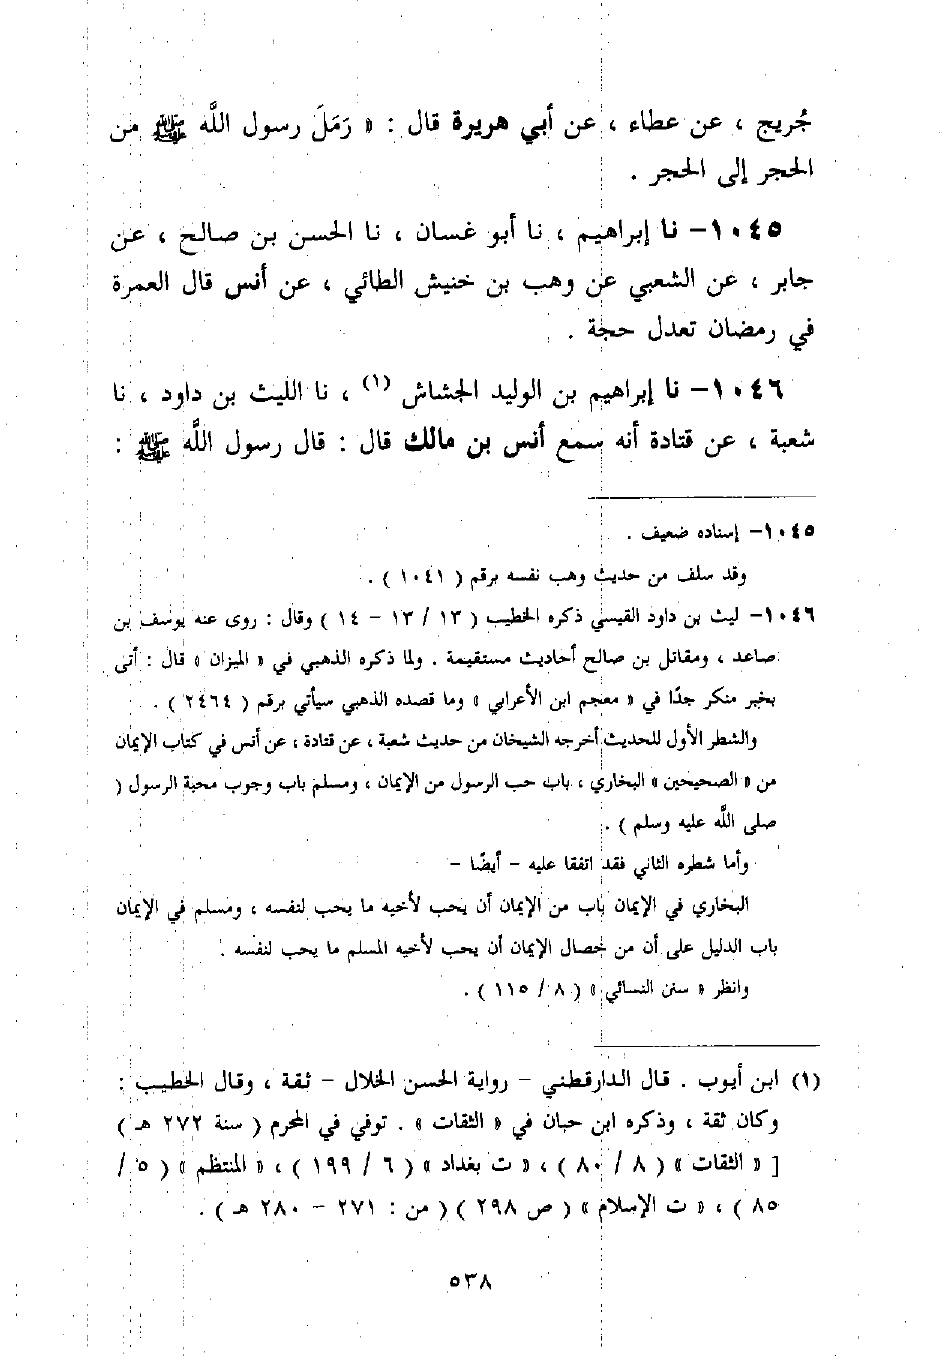 جُريج ، عن عطاء ، عن أبي هريرة قال : « رَمَلَ رسول اللَّه ﷺ من
الحجر إلى الحجر .
١٠٤٥– نا إبراهيم ، نا أبو غسان ، نا الحسن بن صالح ، عن
جابر ، عن الشعبي عن وهب بن خنيش الطائي ، عن أنس قال العمرة
في رمضان تعدل حجة .
١٠٤٦– نا إبراهيم بن الوليد الجشاش (١) ، نا الليث بن داود ، نا
شعبة ، عن قتادة أنه سمع أنس بن مالك قال : قال رسول اللَّه ﷺ :
١٠٤٥– إسناده ضعيف .
وقد سلف من حديث وهب نفسه برقم ( ١٠٤١ ) .
١٠٤٦– ليث بن داود القيسي ذكره الخطيب ( ١٣ / ١٣ – ١٤ ) وقال : روى عنه يوسف بن
صاعد ، ومقاتل بن صالح أحاديث مستقيمة . ولما ذكره الذهبي في « الميزان » قال : أتى
بخبر منكر جدًا في « معجم ابن الأعرابي » وما قصده الذهبي سيأتي برقم ( ٢٤٦٤ ) .
والشطر الأول للحديث أخرجه الشيخان من حديث شعبة ، عن قتادة ، عن أنس في كتاب الإيمان
من « الصحيحين » البخاري ، باب حب الرسول من الإيمان ، ومسلم باب وجوب محبة الرسول (
صلى اللَّه عليه وسلم ) .
وأما شطره الثاني فقد اتفقا عليه – أيضًا –
البخاري في الإيمان باب من الإيمان أن يحب لأخيه ما يحب لنفسه ، ومسلم في الإيمان
باب الدليل على أن من خصال الإيمان أن يحب لأخيه المسلم ما يحب لنفسه .
وانظر « سنن النسائي » ( ٨ / ١١٥ ) .
(١) ابن أيوب . قال الدارقطني – رواية الحسن الخلال – ثقة ، وقال الخطيب :
وكان ثقة ، وذكره ابن حبان في « الثقات » . توفي في المحرم ( سنة ٢٧٢ هـ )
[ « الثقات » ( ٨ / ٨٠ ) ، « ت بغداد » ( ٦ / ١٩٩ ) ، « المنتظم » ( ٥ /
٨٥ ) ، « ت الإسلام » ( ص ٢٩٨ ) ( من : ٢٧١ – ٢٨٠ هـ ) .
٥٣٨